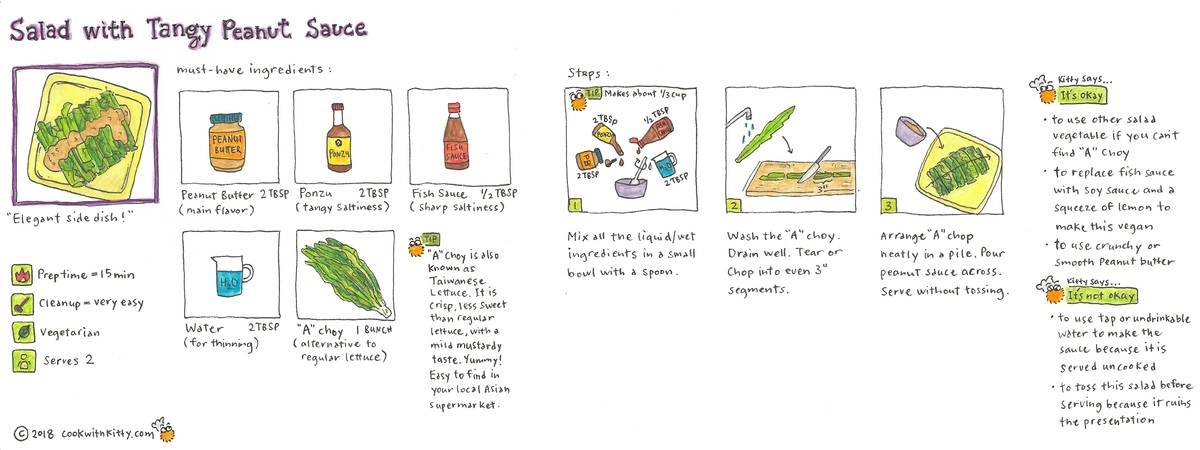 Salad with Tangy Peanut Sauce
"Elegant side dish!"
Prep time = 15 min
Cleanup = very easy
Vegetarian
Serves 2
© 2018 cookwithkitty.com
must-have ingredients:
PEANUT
BUTTER
Peanut Butter 2 TBSP
(main flavor)
PONZU
Ponzu 2 TBSP
(tangy saltiness)
FISH
SAUCE
Fish Sauce 1/2 TBSP
(sharp saltiness)
H2O
Water 2 TBSP
(for thinning)
"A" choy 1 BUNCH
(alternative to
regular lettuce)
TIP
"A" choy is also
known as
Taiwanese
Lettuce. It is
crisp, less sweet
than regular
lettuce, with a
mild mustardy
taste. Yummy!
Easy to find in
your local Asian
supermarket.
Steps:
TIP Makes about 1/3 cup
2 TBSP
PONZU
1/2 TBSP
FISH
SAUCE
PB
2 TBSP
H2O
2 TBSP
1
Mix all the liquid/wet
ingredients in a small
bowl with a spoon.
3"
2
Wash the "A" choy.
Drain well. Tear or
Chop into even 3"
segments.
3
Arrange "A" chop
neatly in a pile. Pour
peanut sauce across.
Serve without tossing.
Kitty says...
It's okay
• to use other salad
vegetable if you can't
find "A" choy
• to replace fish sauce
with soy sauce and a
squeeze of lemon to
make this vegan
• to use crunchy or
smooth peanut butter
Kitty says...
It's not okay
• to use tap or undrinkable
water to make the
sauce because it is
served uncooked
• to toss this salad before
serving because it ruins
the presentation